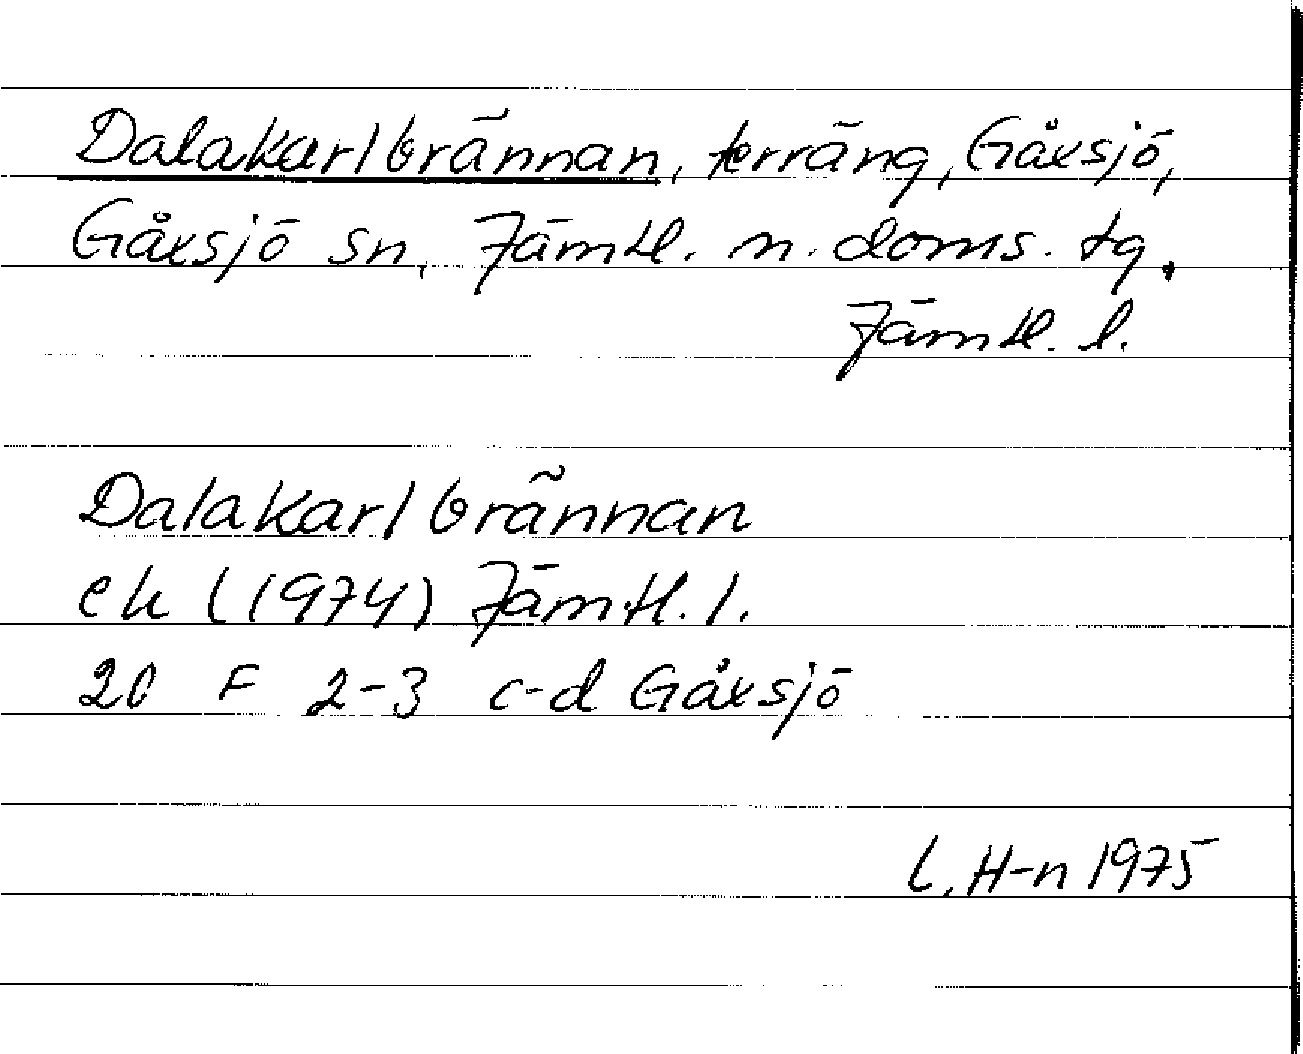 Dalakarlbrännan, terräng, Gåxsjö,
Gåxsjö sn, Jämtl. n. doms. tg,
Jämtl. l.
Dalakarlbrännan
ek l (1974) Jämtl. l.
20 F 2-3 c-d Gåxsjö
L. H-n 1975